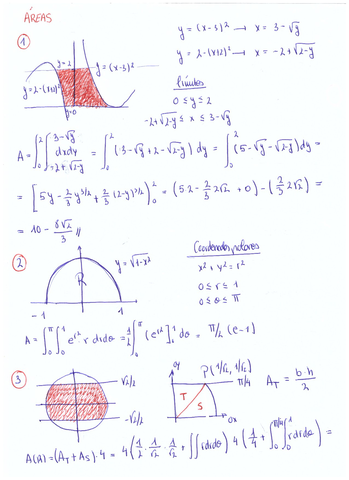 ÁREAS
y = (x-3)² → x = 3-√y
y = 2-(x+2)² → x = -2+√2-y
①
y=2
y=(x-3)²
y=2-(x+2)²
y=0
Límites
0 ≤ y ≤ 2
-2+√2-y ≤ x ≤ 3-√y
A = ∫₀² ∫_{-2+√2-y}^{3-√y} dxdy = ∫₀² (3-√y+2-√2-y) dy = ∫₀² (5-√y-√2-y) dy =
= [5y - 2/3 y^{3/2} + 2/3 (2-y)^{3/2}]₀² = (5·2 - 2/3 2√2 + 0) - (2/3 2√2) =
= 10 - 8√2/3 //
②
y=√1-x²
R
-1
1
Coordenadas polares
x²+y²=r²
0 ≤ r ≤ 1
0 ≤ θ ≤ π
A = ∫₀^π ∫₀¹ e^{r²} r drdθ = 1/2 ∫₀^π (e^{r²}]₀¹ dθ = π/2 (e-1)
③
√2/2
-√2/2
oy
P(1/√2, 1/√2)
π/4
T
S
ox
A_T = b·h/2
A(R) = (A_T + A_S)·4 = 4(1/2 · 1/√2 · 1/√2 + ∫∫ rdrdθ) 4(1/4 + ∫₀^{π/4} ∫₀¹ rdrdθ) =